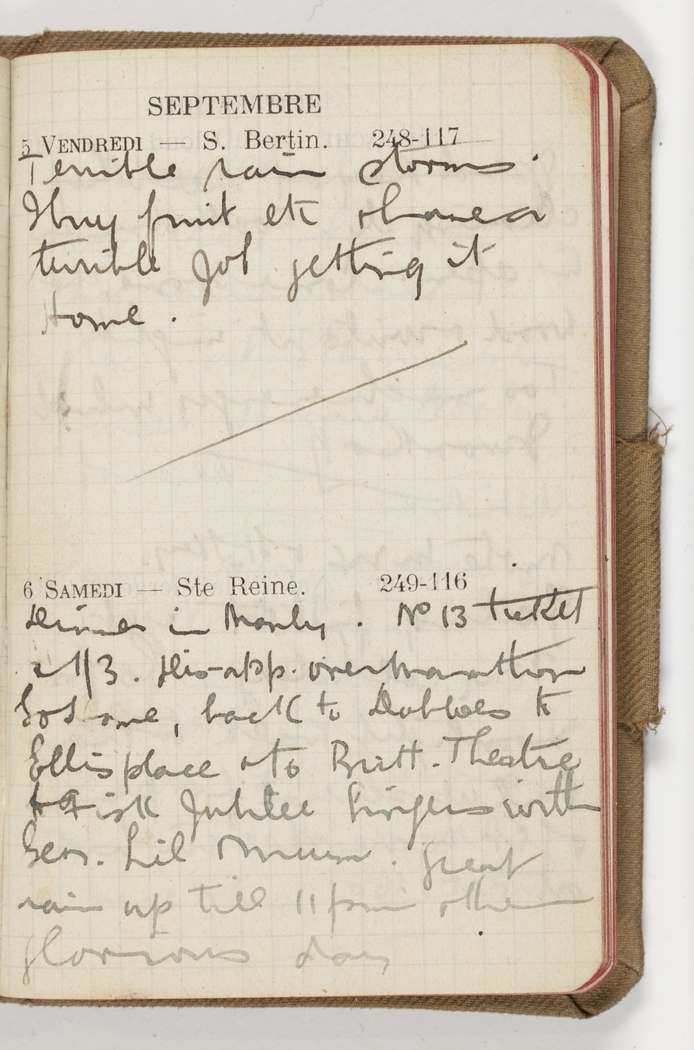 SEPTEMBRE
5 VENDREDI — S. Bertin. 248-117
Terrible rain storms.
I buy fruit etc & have a
terrible job getting it
Home.
6 SAMEDI — Ste Reine. 249-116
Dinner in Manly. No 13 ticket
at 1/3. Dis-app. over marathon
So home, back to Dobbies to
Ellis place & to Britt. Theatre
to Fisk Jubilee Singers with
Geo. Lil Mum. Great
rain up till 11 pm other
glorious day